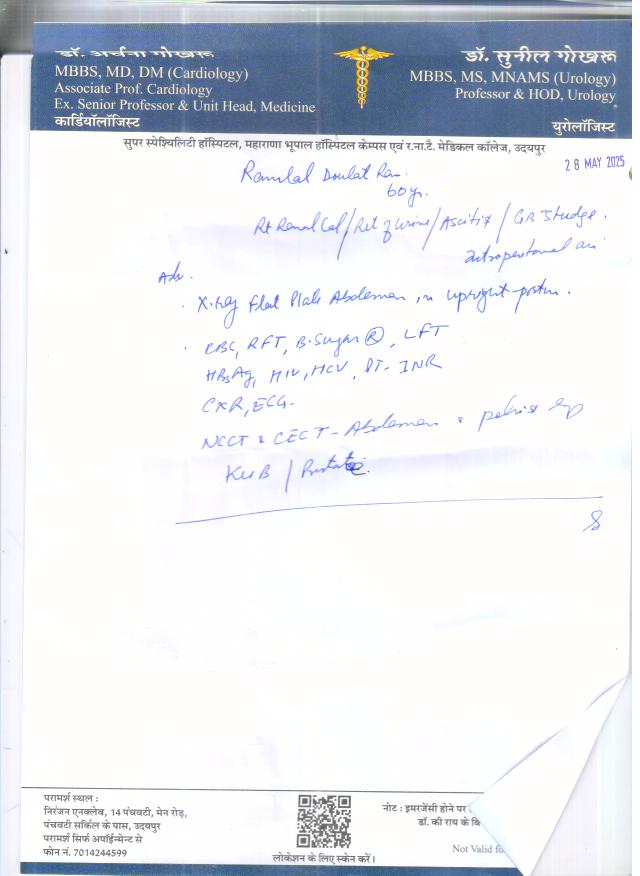 डॉ. अर्चना गोखरू
MBBS, MD, DM (Cardiology)
Associate Prof. Cardiology
Ex. Senior Professor & Unit Head, Medicine
कार्डियॉलॉजिस्ट
डॉ. सुनील गोखरू
MBBS, MS, MNAMS (Urology)
Professor & HOD, Urology
युरोलॉजिस्ट
सुपर स्पेश्यिलिटी हॉस्पिटल, महाराणा भूपाल हॉस्पिटल केम्पस एवं र.ना.टै. मेडिकल कॉलेज, उदयपुर
28 MAY 2025
Ramlal Doulat Ram.
60 yr.
Rt Renal Cal / Ret of Urine / Ascitis / GB Sludge.
Adv.
X-ray Flat Plate Abdomen in upright posture.
CBC, RFT, B. Sugar (R), LFT
HBsAg, HIV, HCV, PT-INR
CXR, ECG.
NCCT & CECT - Abdomen &
KUB / Prostate
परामर्श स्थल :
निरंजन एनक्लेव, 14 पंचवटी, मेन रोड़,
पंचवटी सर्किल के पास, उदयपुर
परामर्श सिर्फ अपॉईन्मेन्ट से
फोन नं. 7014244599
लोकेशन के लिए स्केन करें।
नोट : इमरजेंसी होने पर
डॉ. की राय के बि
Not Valid fo